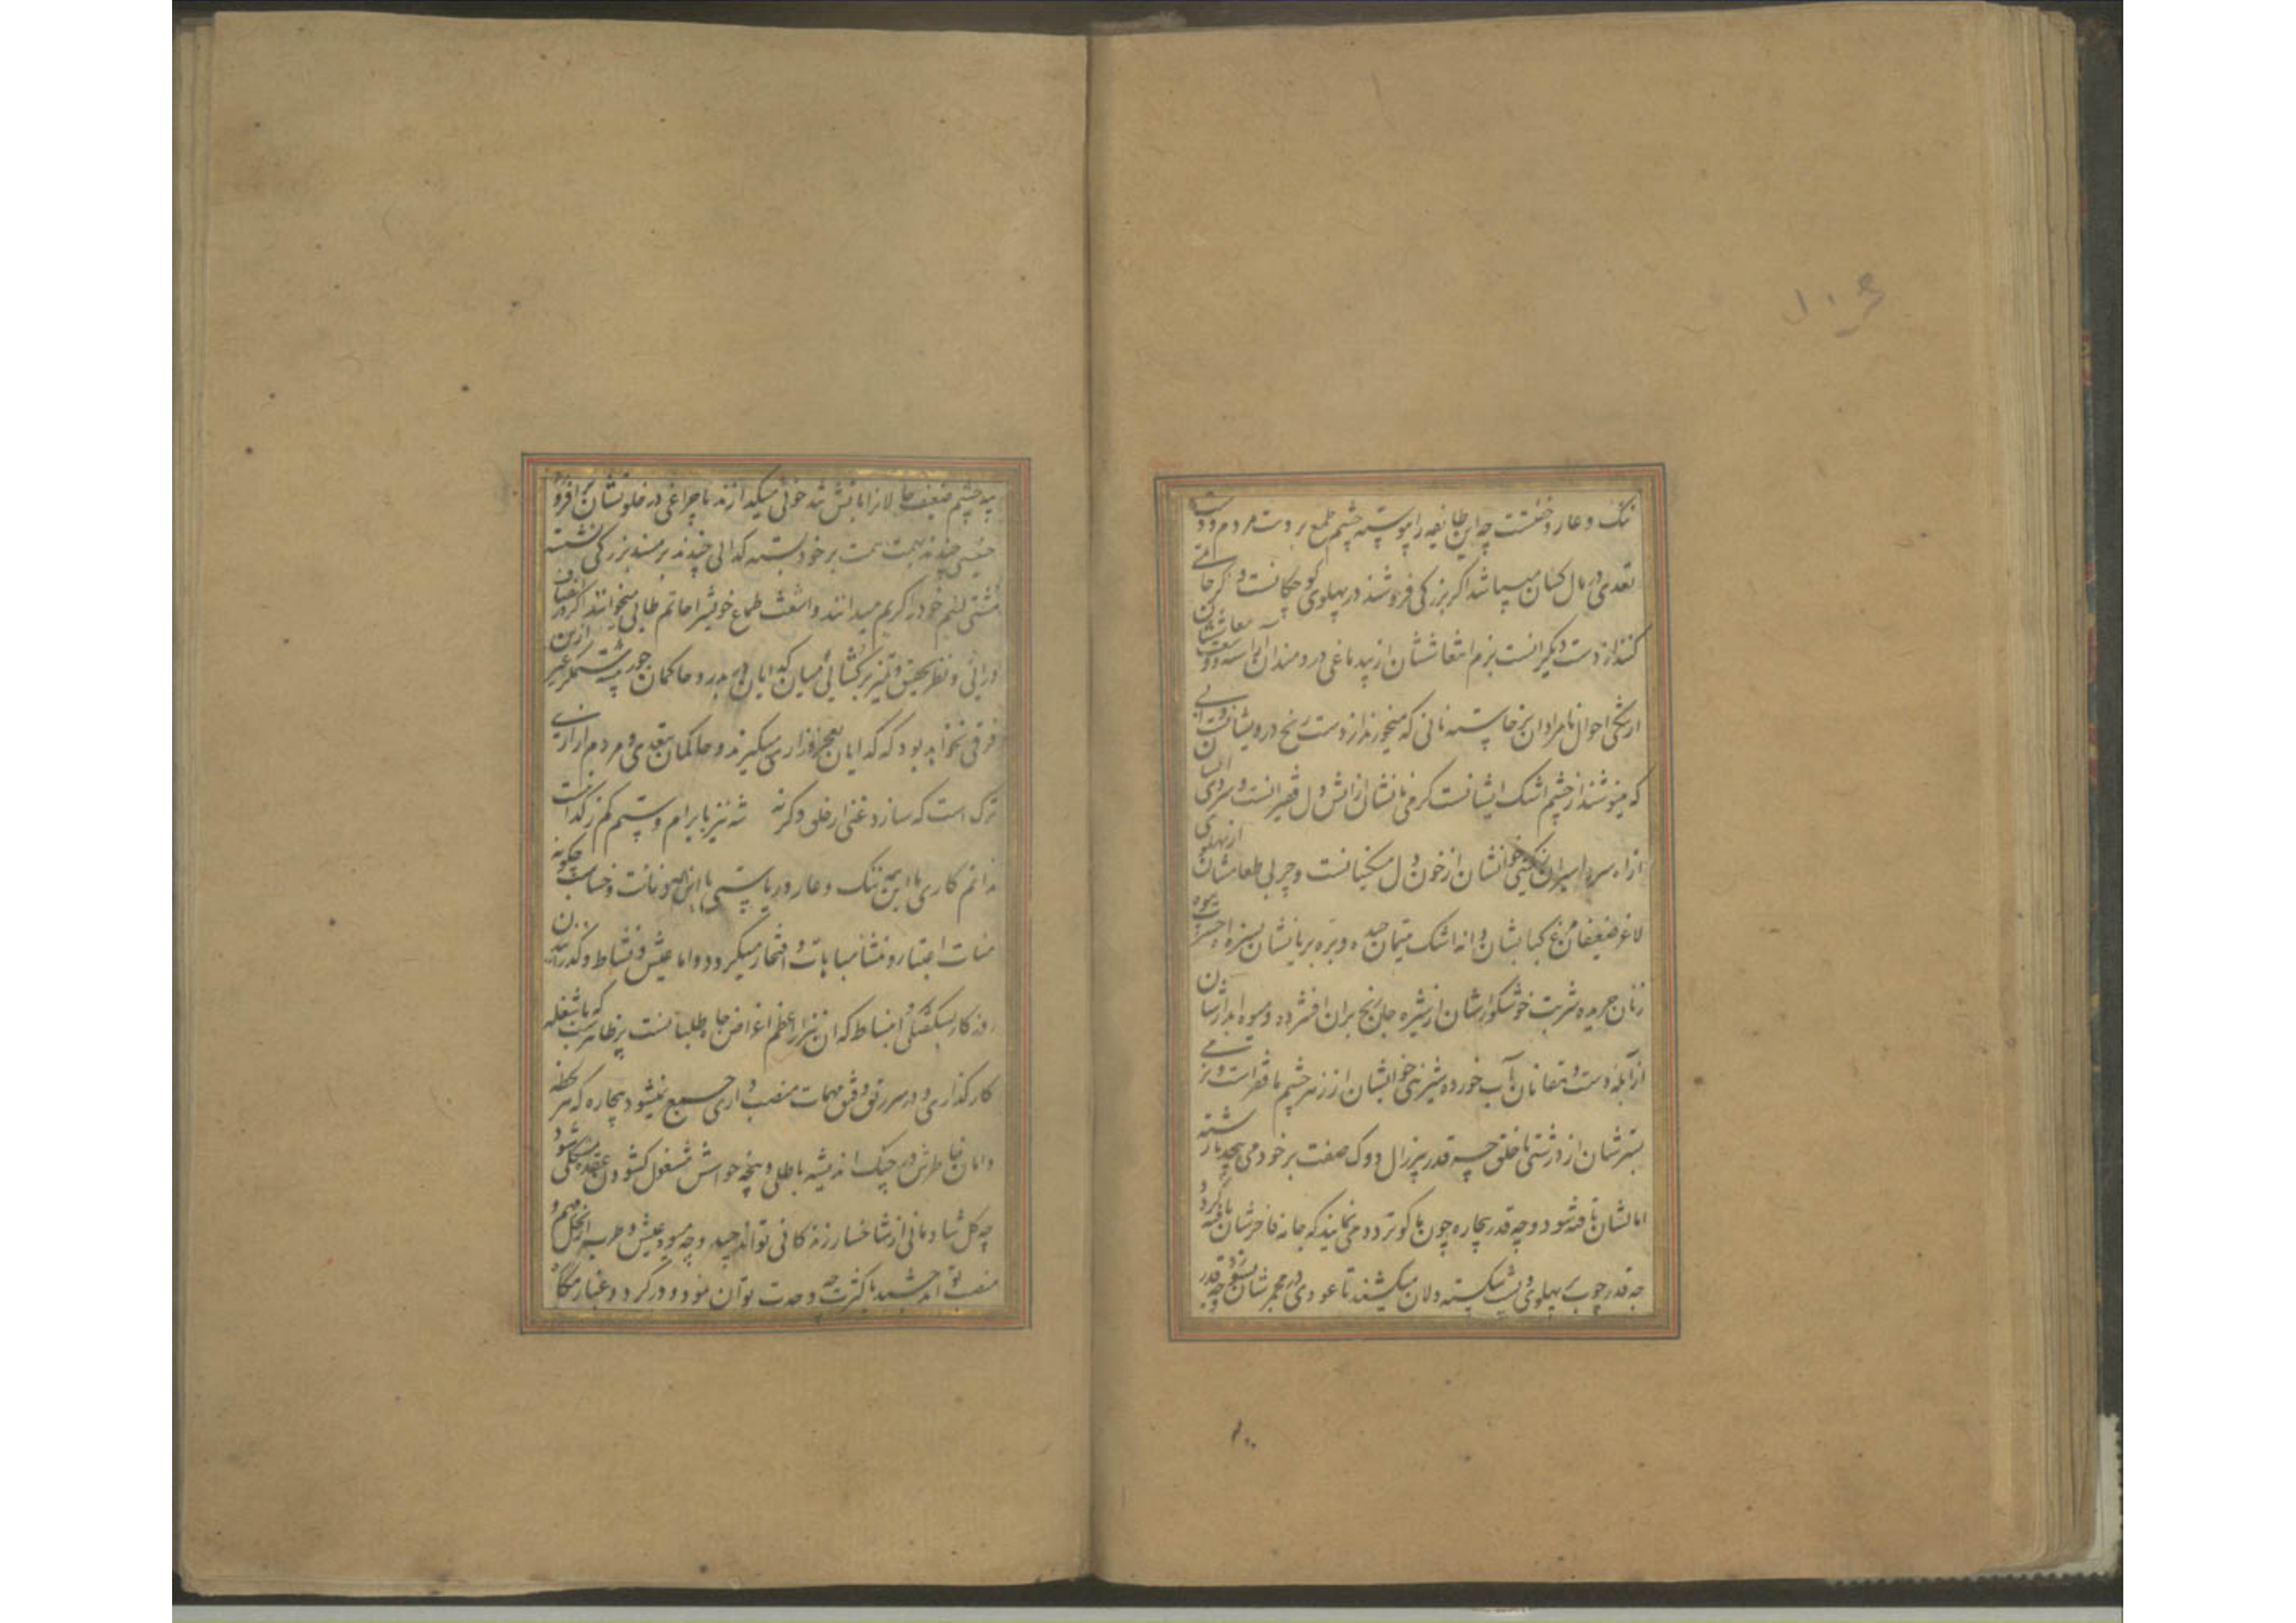 ننگ و عار و خفتست چه این طایفه را پیوسته چشم طمع بر دست مردم و دست
تعدی در مال کسان میباشد اگر بزرگی فروشند در پهلوی کوچکانست و گر حاتمی
کنند از دست دیگرانست بزم انتعاششان از بیدماغی دردمندان آراسته و وسعت معاششان
از تنگی احوال نامرادان برخاسته نانی که میخورند از دست رنج درویشانست و آبی
که مینوشند از چشم اشک ایشانست گرمی نانشان از آتش دل فقیرانست و سردی آبشان
از آه سرد اسیران نمکینی خوانشان از خون دل مسکینانست و چربی طعامشان از پهلوی
لاغر ضعیفان مرغ کبابشان دانه اشک یتیمان چیده و بره بریانشان سبزه حسرت بیوه
زنان چریده شربت خوشگوارشان از شیره جان رنجبران افشرده و میوه آبدارشان
از آبله دست دهقانان آب خورده شیرینی خوانشان از زهر چشم فقراست و نرمی
بسترشان از درشتی با خلق چه قدر پیرزال دوک صفت بر خود می پیچد تا رشته
امالشان تافته شود و چه قدر بیچاره چون ماکو تردد می نمایند که جامه فاخرشان بافته گردد
چه قدر چوب بپهلوی پشت شکسته دلان میکشند تا عودی در مجمرشان بسوزد و چه قدر
پیه چشم ضعیف حالانرا باتش تندخوئی میگدازند تا چراغی در خلوتشان برافروزد
خسیسی چندند تهمت همت بر خود بسته گدائی چندند بر مسند بزرگی نشسته
مشتی لئیم خود را کریم میدانند و اشعث طماع خویش را حاتم طائی میخوانند اگر در انصاف
درآئی و نظر تحقیق و تمیز برگشائی میان گدایان در بدر و حاکمان جور پیشه ستمگر غیر ازین
فرقی نخواهد بود که گدایان بعجز و زاری میگیرند و حاکمان بتعدی و مردم آزاری
ترک است که سازد غنی از خلق و گرنه شه نیز بابرام و ستم کم ز گدا نیست
ندانم کاری با این همه ننگ و عار و ریاستی با این همه دنائت و خساست چگونه
منات اعتبار و منشأ مباهات و افتخار میگردد و اما عیش و نشاط و گذرانیدن
روزگار بسبکی و انبساط که آن نیز از اعظم اغراض جاه طلبانست پر ظاهرست که با مشغله
کارگذاری و دردسر رتق و فتق مهمات منصب داری جمع نمیشود بیچاره که هر لحظه
دامان خاطرش در چنگ اندیشه باطلی و پنجه حواسش مشغول گشودن عقده مشکلی شود
چه گل شادمانی از شاخسار زندگانی تواند چید و چه میوه عیش و طرب از نخل مهم و
منصب تواند چشید با کثرت چه وحدت توان نمود و در گرد و غبار